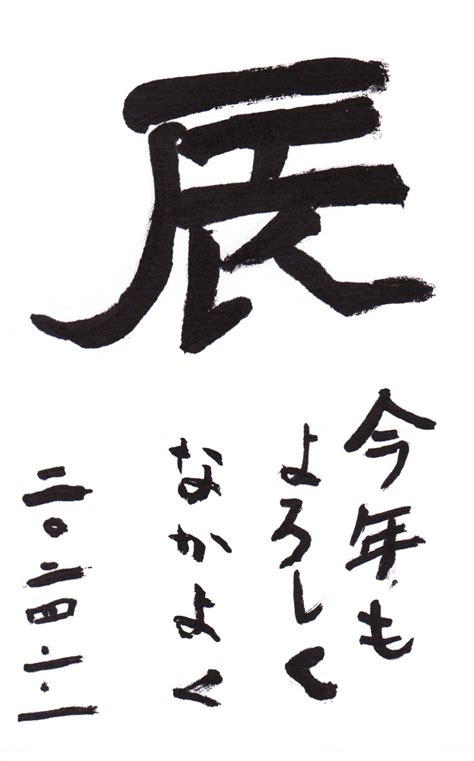 辰
今年も
よろしく
なかよく
二〇二四.一.一